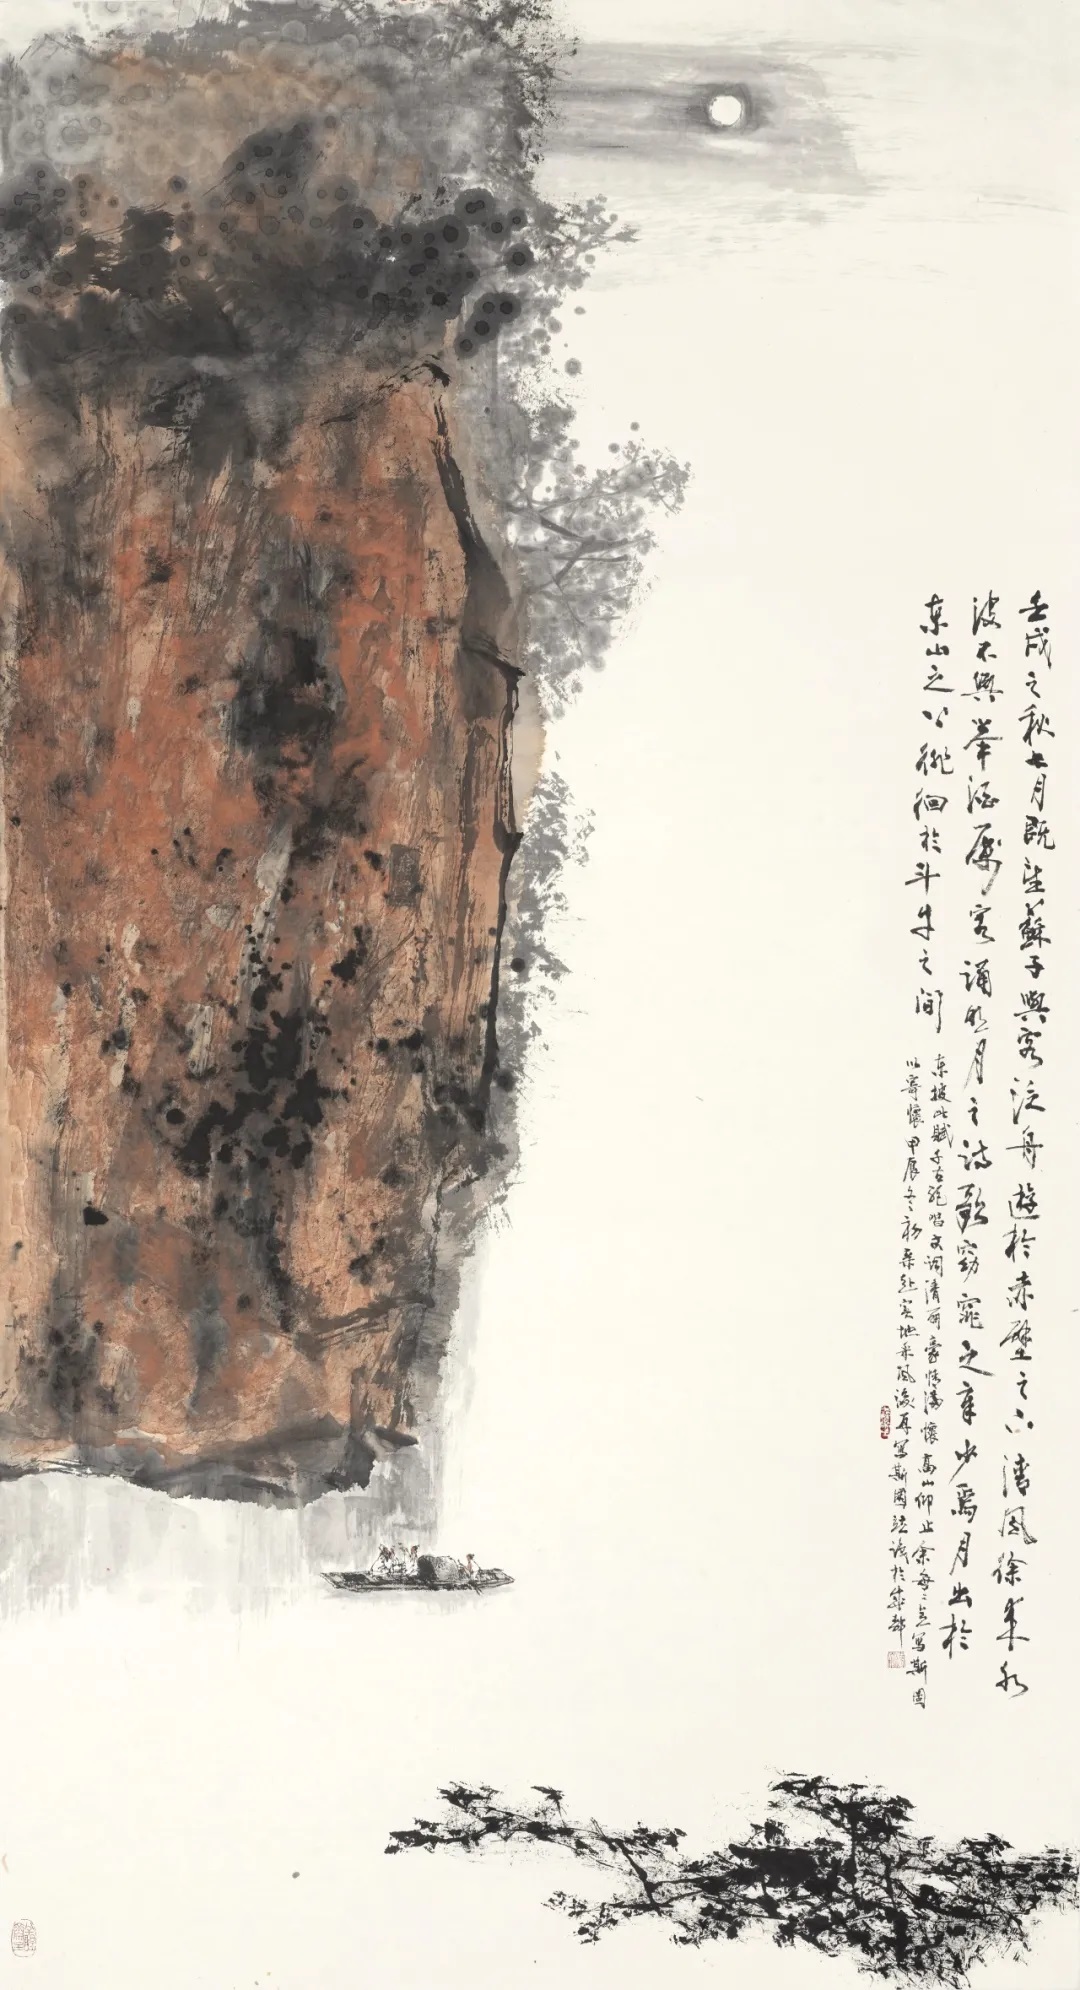 壬戌之秋七月既望蘇子與客泛舟遊於赤壁之下清風徐來水
波不興舉酒屬客誦明月之詩歌窈窕之章少焉月出於
東山之上徘徊於斗牛之間
東坡此賦千古絕唱文詞清丽豪情滿懷高山仰止余每寫斯圖
以寄懷甲辰冬初余赴实地采風後再寫斯圖識於成都